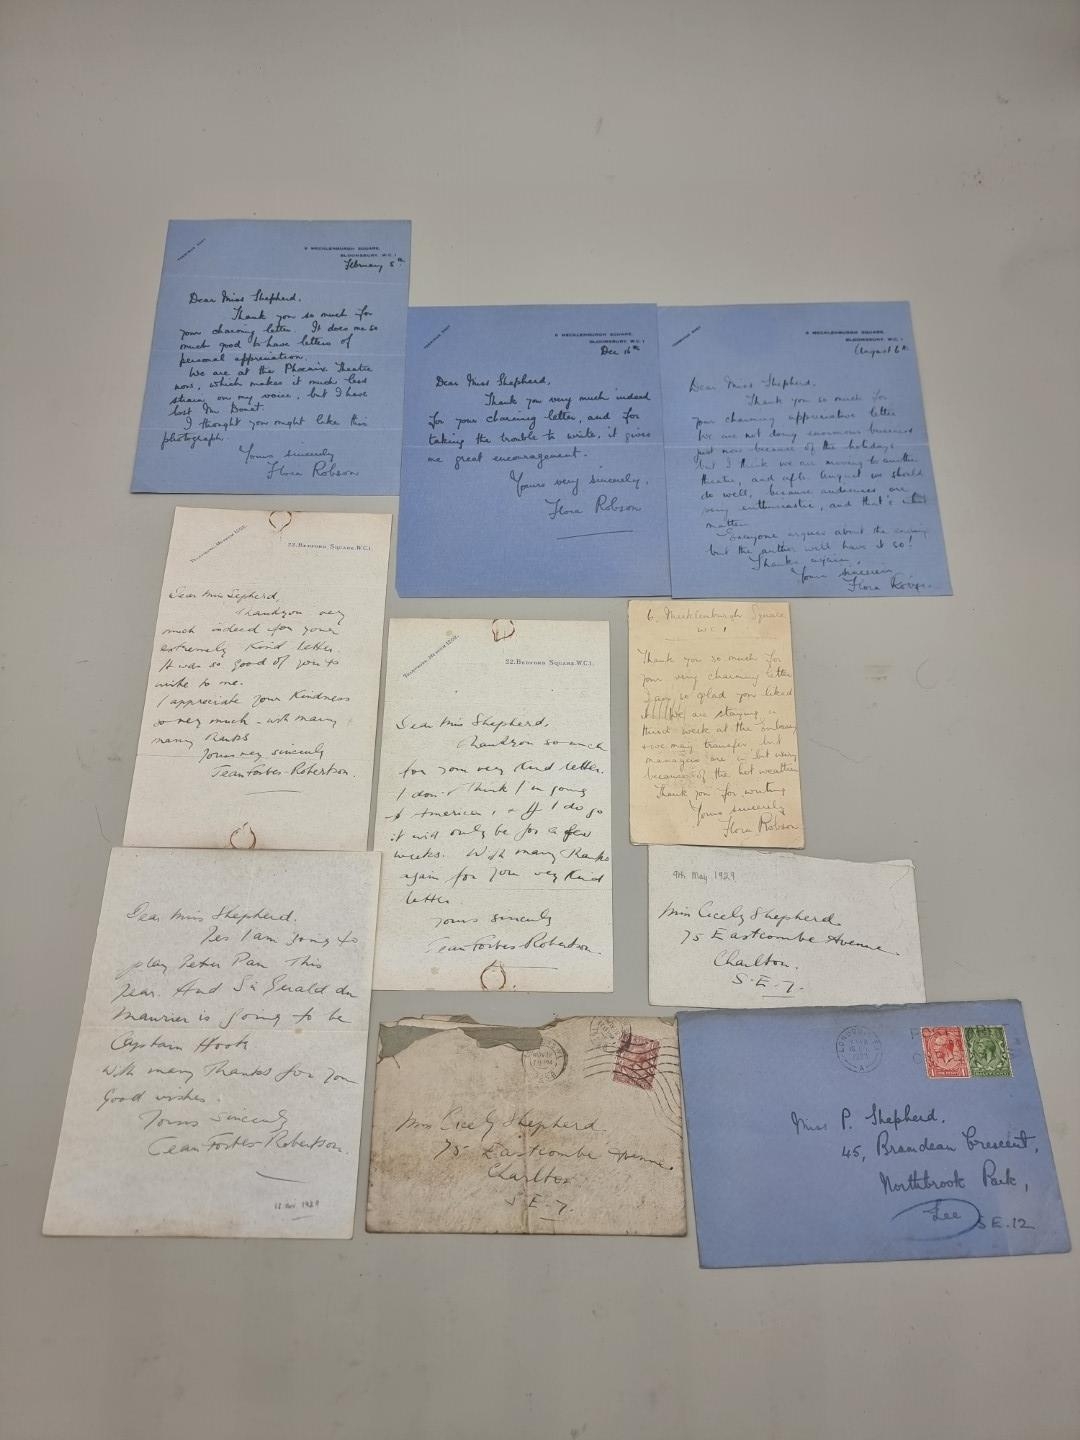 6 MECKLENBURGH SQUARE,
BLOOMSBURY, W.C.1
February 8th
Dear Miss Shepherd,
Thank you so much for
your charming letter. It does me so
much good to have letters of
personal appreciation.
We are at the Phoenix Theatre
now, which makes it much less
strain on my voice, but I have
lost Mr Donat.
I thought you might like this
photograph.
Yours sincerely
Flora Robson
6 MECKLENBURGH SQUARE,
BLOOMSBURY, W.C.1
Dec 16th
Dear Miss Shepherd,
Thank you very much indeed
for your charming letter, and for
taking the trouble to write, it gives
me great encouragement.
Yours very sincerely,
Flora Robson
6 MECKLENBURGH SQUARE,
BLOOMSBURY, W.C.1
August 6th
Dear Miss Shepherd,
Thank you so much for
your charming appreciative letter
We are not doing enormous business
just now because of the holidays
but I think we are moving to another
theatre, and after August we should
do well, because audiences are
very enthusiastic, and that's what
matters
Everyone argues about the ending
but the author will have it so!
Thanks again,
Yours sincerely
Flora Robson
TELEPHONE, MUSEUM
22, BEDFORD SQUARE, W.C.1.
Dear Miss Sepherd,
Thankyou very
much indeed for your
extremely kind letter.
It was so good of you to
write to me.
I appreciate your kindness
so very much - with many
many thanks
Yours very sincerely
Jean Forbes-Robertson.
TELEPHONE, MUSEUM
22, BEDFORD SQUARE, W.C.1.
Dear Miss Shepherd,
Thankyou so much
for your very kind letter.
I don't think I'm going
to America, & if I do go
it will only be for a few
weeks. With many thanks
again for your very kind
letter
Yours sincerely
Jean Forbes-Robertson.
6, Mecklenburgh Square
W.C.1
Thank you so much for
your very charming letter
I am so glad you liked
it. We are staying a
third week at the Embassy
& we may transfer, but
managers are
because of the hot weather
Thank you for writing
Yours sincerely
Flora Robson
Dear Miss Shepherd.
Yes I am going to
play Peter Pan this
year. And Sir Gerald du
Maurier is going to be
Captain Hook
With many thanks for you
good wishes.
Yours sincerely
Jean Forbes-Robertson.
1929
9th May 1929
Miss Cicely Shepherd
75 Eastcombe Avenue
Charlton.
S.E.7.
Miss Cicely Shepherd
75 Eastcombe Avenue
Charlton
S.E.7.
LONDON
Miss P. Shepherd.
45, Brandean Crescent,
Northbrook Park,
Lee S.E.12